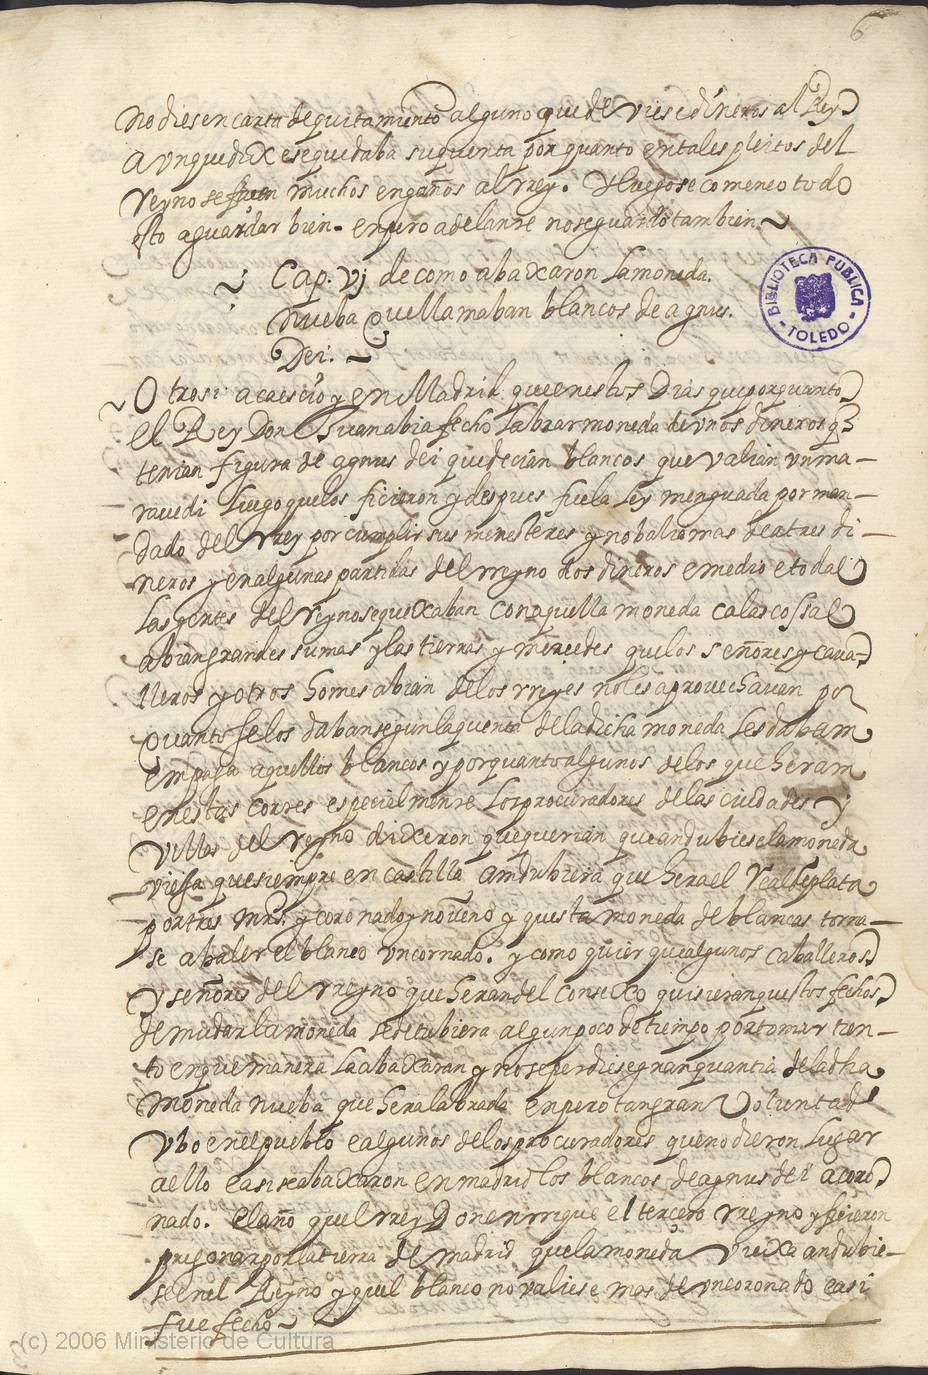 6
no diesen carta de quitamiento alguno que deviese dineros al Rey
aunque dixese quedaba su quenta por quanto en tales pleitos del
reyno se facen muchos engaños al rrey. Y luego se començo todo
esto aguardar bien. enpero adelante no se guardo tambien ~
Cap. vj de como abaxaron la moneda
nueba que llamaban blancos de agnus.
Dei. ~
Otrosi acaescio y en Madrid que en estos Dias que por quanto
el Rey Don Juan abia fecho labrar moneda de unos dineros q
tenian figura de agnus dei que decian blancos que valian un ma-
ravedi luego que los ficieron y despues fue la ley menguada por man-
dado del rrey por cumplir sus menesteres y no balio mas de a tres di-
neros y en algunas partidas del rreyno dos dineros e medio e todas
las gentes del rreyno se quexaban con aquella moneda ca las cossas
abian grandes sumas y las tierras y mercedes que los señores y cava-
lleros y otros homes abian de los rreyes no les aprovechavan por
quanto se los daban segun la quenta de la dicha moneda les daban
em paga aquellos blancos y por quanto algunos de los que heran
en estas cortes especialmente los procuradores de las ciudades y
villas del reyno dixeron que querian que andubiese la moneda
viessa que siempre en castilla andubiera que hera el Real de plata
por tres mrs. y coronado y noveno y questa moneda de blancas torna-
se a baler el blanco un cornado. y como quier que algunos caballeros
y señores del rreyno que heran del consexo quisieran questos fechos
de mudar la moneda se detubiera algun poco de tiempo por tomar tien-
to en que manera la abaxaran y no se perdiese gran quantia de la dha
moneda nueba que hera labrada enpero tan gran voluntad
ubo en el pueblo e algunos de los procuradores que no dieron lugar
a ello e asi se abaxaron en madrid los blancos de agnus dei a coro
nado. el año quel rrey Don enrrique el tercero rreyno y ficieron
pregonar por la tierra de madrid que la moneda viexa andubie-
se en el Reyno y quel blanco no valiese mas de un coronado e asi
fue fecho ~
BIBLIOTECA PUBLICA
- TOLEDO -
(c) 2006 Ministerio de Cultura